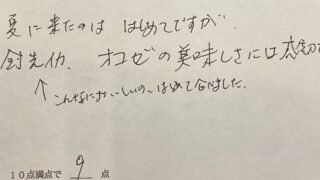 夏に来たのは はじめてですが、
対先付、オコゼの美味しさには感動
↑こんなにおいしいの、はじめて食べました。
10点満点で 9 点